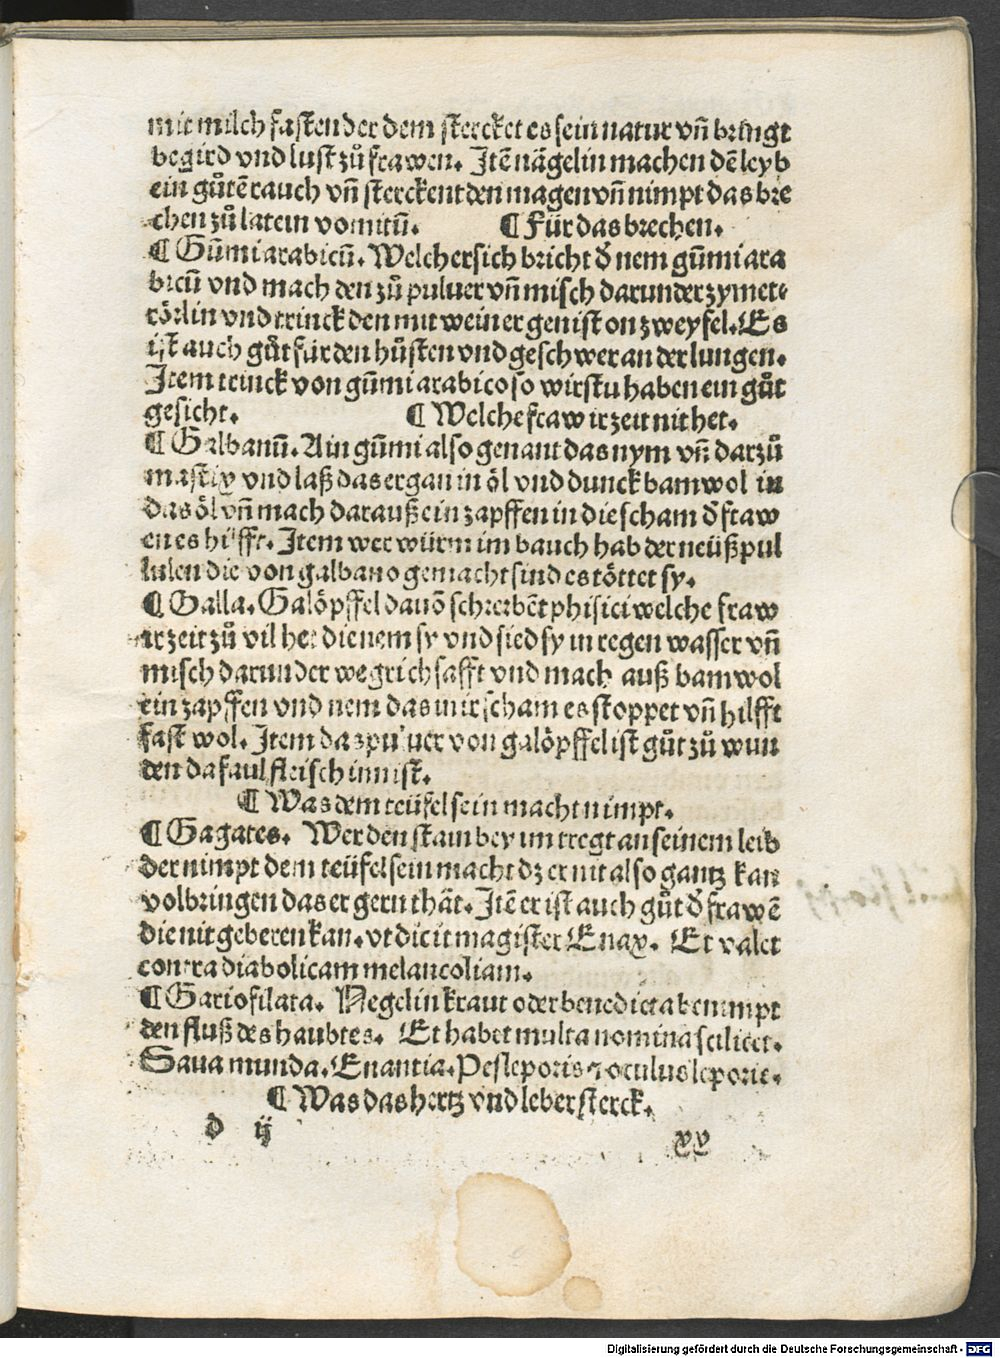 mit milch fasten der dem stercket es sein natur vñ bringt
begird vnd lust zů frawen. Jtē nägelin machen dē leyb
ein gůtē rauch vñ sterckent den magen vñ nimpt das bre
chen zů latein vomitū. ¶ Für das brechen.
¶ Gūmi arabicū. Welcher sich bricht d̕ nem gūmi ara
bicū vnd mach den zů puluer vñ misch darunder zymet⸗
rörlin vnd trinck den mit wein er genist on zweyfel. Es
ist auch gůt für den hůsten vnd geschwer an der lungen.
Jtem trinck von gūmi arabico so wirstu haben ein gůt
gesicht. ¶ Welche fraw ir zeit nit het.
¶ Galbanū. Ain gūmi also genant das nym vñ darzů
mastix vnd laß das ergan in öl vnd dunck bamwol in
das öl vñ mach darauß ein zapffen in die scham d̕ fraw
en es hilfft. Jtem wer würm im bauch hab der neüß pul
lulen die von galbano gemacht sind es töttet sy.
¶ Galla. Galöpffel dauō schreibēt phisici welche fraw
ir zeit zů vil het die nem sy vnd sied sy in regen wasser vñ
misch darunder wegrich safft vnd mach auß bamwol
ein zapffen vnd nem das in ir scham es stoppet vñ hilfft
fast wol. Jtem das puluer von galöpffel ist gůt zů wun
den da faul fleisch inn ist.
¶ Was dem teüfel sein macht nimpt.
¶ Gagates. Wer den stain bey im tregt an seinem leib
der nimpt dem teüfel sein macht dz er nit also gantz kan
volbringen das er gern thät. Jtē er ist auch gůt d̕ frawē
die nit geberen kan. vt dicit magister Enax. Et valet
contra diabolicam melancoliam.
¶ Gariofilata. Negelin kraut oder benedicta benimpt
den fluß des haubtes. Et habet multa nomina scilicet.
Saua munda. Enantia. Pes leporis ⁊ oculus leporie.
¶ Was das hertz vnd leber sterck.
d ij xx
Digitalisierung gefördert durch die Deutsche Forschungsgemeinschaft - DFG